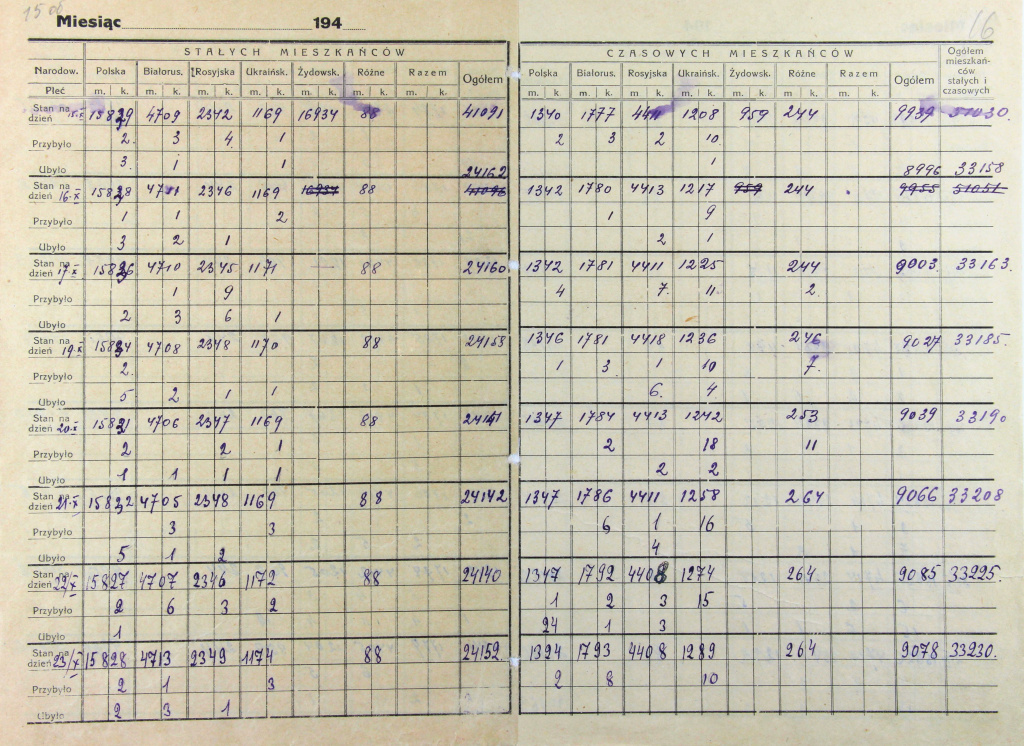 15 об
16
Miesiąc 194
STAŁYCH MIESZKAŃCÓW CZASOWYCH MIESZKAŃCÓW Ogółem mieszkań-ców stałych i czasowych
Narodow. Polska Białorus. Rosyjska Ukraińsk. Żydowsk. Różne Razem Ogółem Polska Białorus. Rosyjska Ukraińsk. Żydowsk. Różne Razem Ogółem
Płeć m. k. m. k. m. k. m. k. m. k. m. k. m. k. m. k. m. k. m. k. m. k. m. k. m. k. m. k.
Stan na dzień 15-X 15829 4709 2342 1169 16934 88 41091 1340 1777 4411 1208 959 244 9939 51030
Przybyło 2 3 4 1 2 3 2 10
Ubyło 3 1 1 24162 1 8996 33158
Stan na dzień 16-X 15828 4711 2346 1169 16937 88 41096 1342 1780 4413 1217 959 244 9955 51051
Przybyło 1 1 2 1 9
Ubyło 3 2 1 2 1
Stan na dzień 17-X 15826 4710 2345 1171 — 88 24160 1342 1781 4411 1225 244 9003 33163
Przybyło 1 9 4 7 11 2
Ubyło 2 3 6 1
Stan na dzień 19-X 15824 4708 2348 1170 88 24158 1346 1781 4418 1236 246 9027 33185
Przybyło 2 1 3 1 10 7
Ubyło 5 2 1 1 6 4
Stan na dzień 20-X 15821 4706 2347 1169 88 24141 1347 1784 4413 1242 253 9039 33190
Przybyło 2 2 1 2 18 11
Ubyło 1 1 1 1 2 2
Stan na dzień 21-X 15822 4705 2348 1169 88 24142 1347 1786 4411 1258 264 9066 33208
Przybyło 3 3 6 1 16
Ubyło 5 1 2 4
Stan na dzień 22/X 15827 4707 2346 1172 88 24140 1347 1792 4408 1274 264 9085 33225
Przybyło 2 6 3 2 1 2 3 15
Ubyło 1 24 1 3
Stan na dzień 23/X 15828 4713 2349 1174 88 24152 1324 1793 4408 1289 264 9078 33230
Przybyło 2 1 3 2 8 10
Ubyło 2 3 1